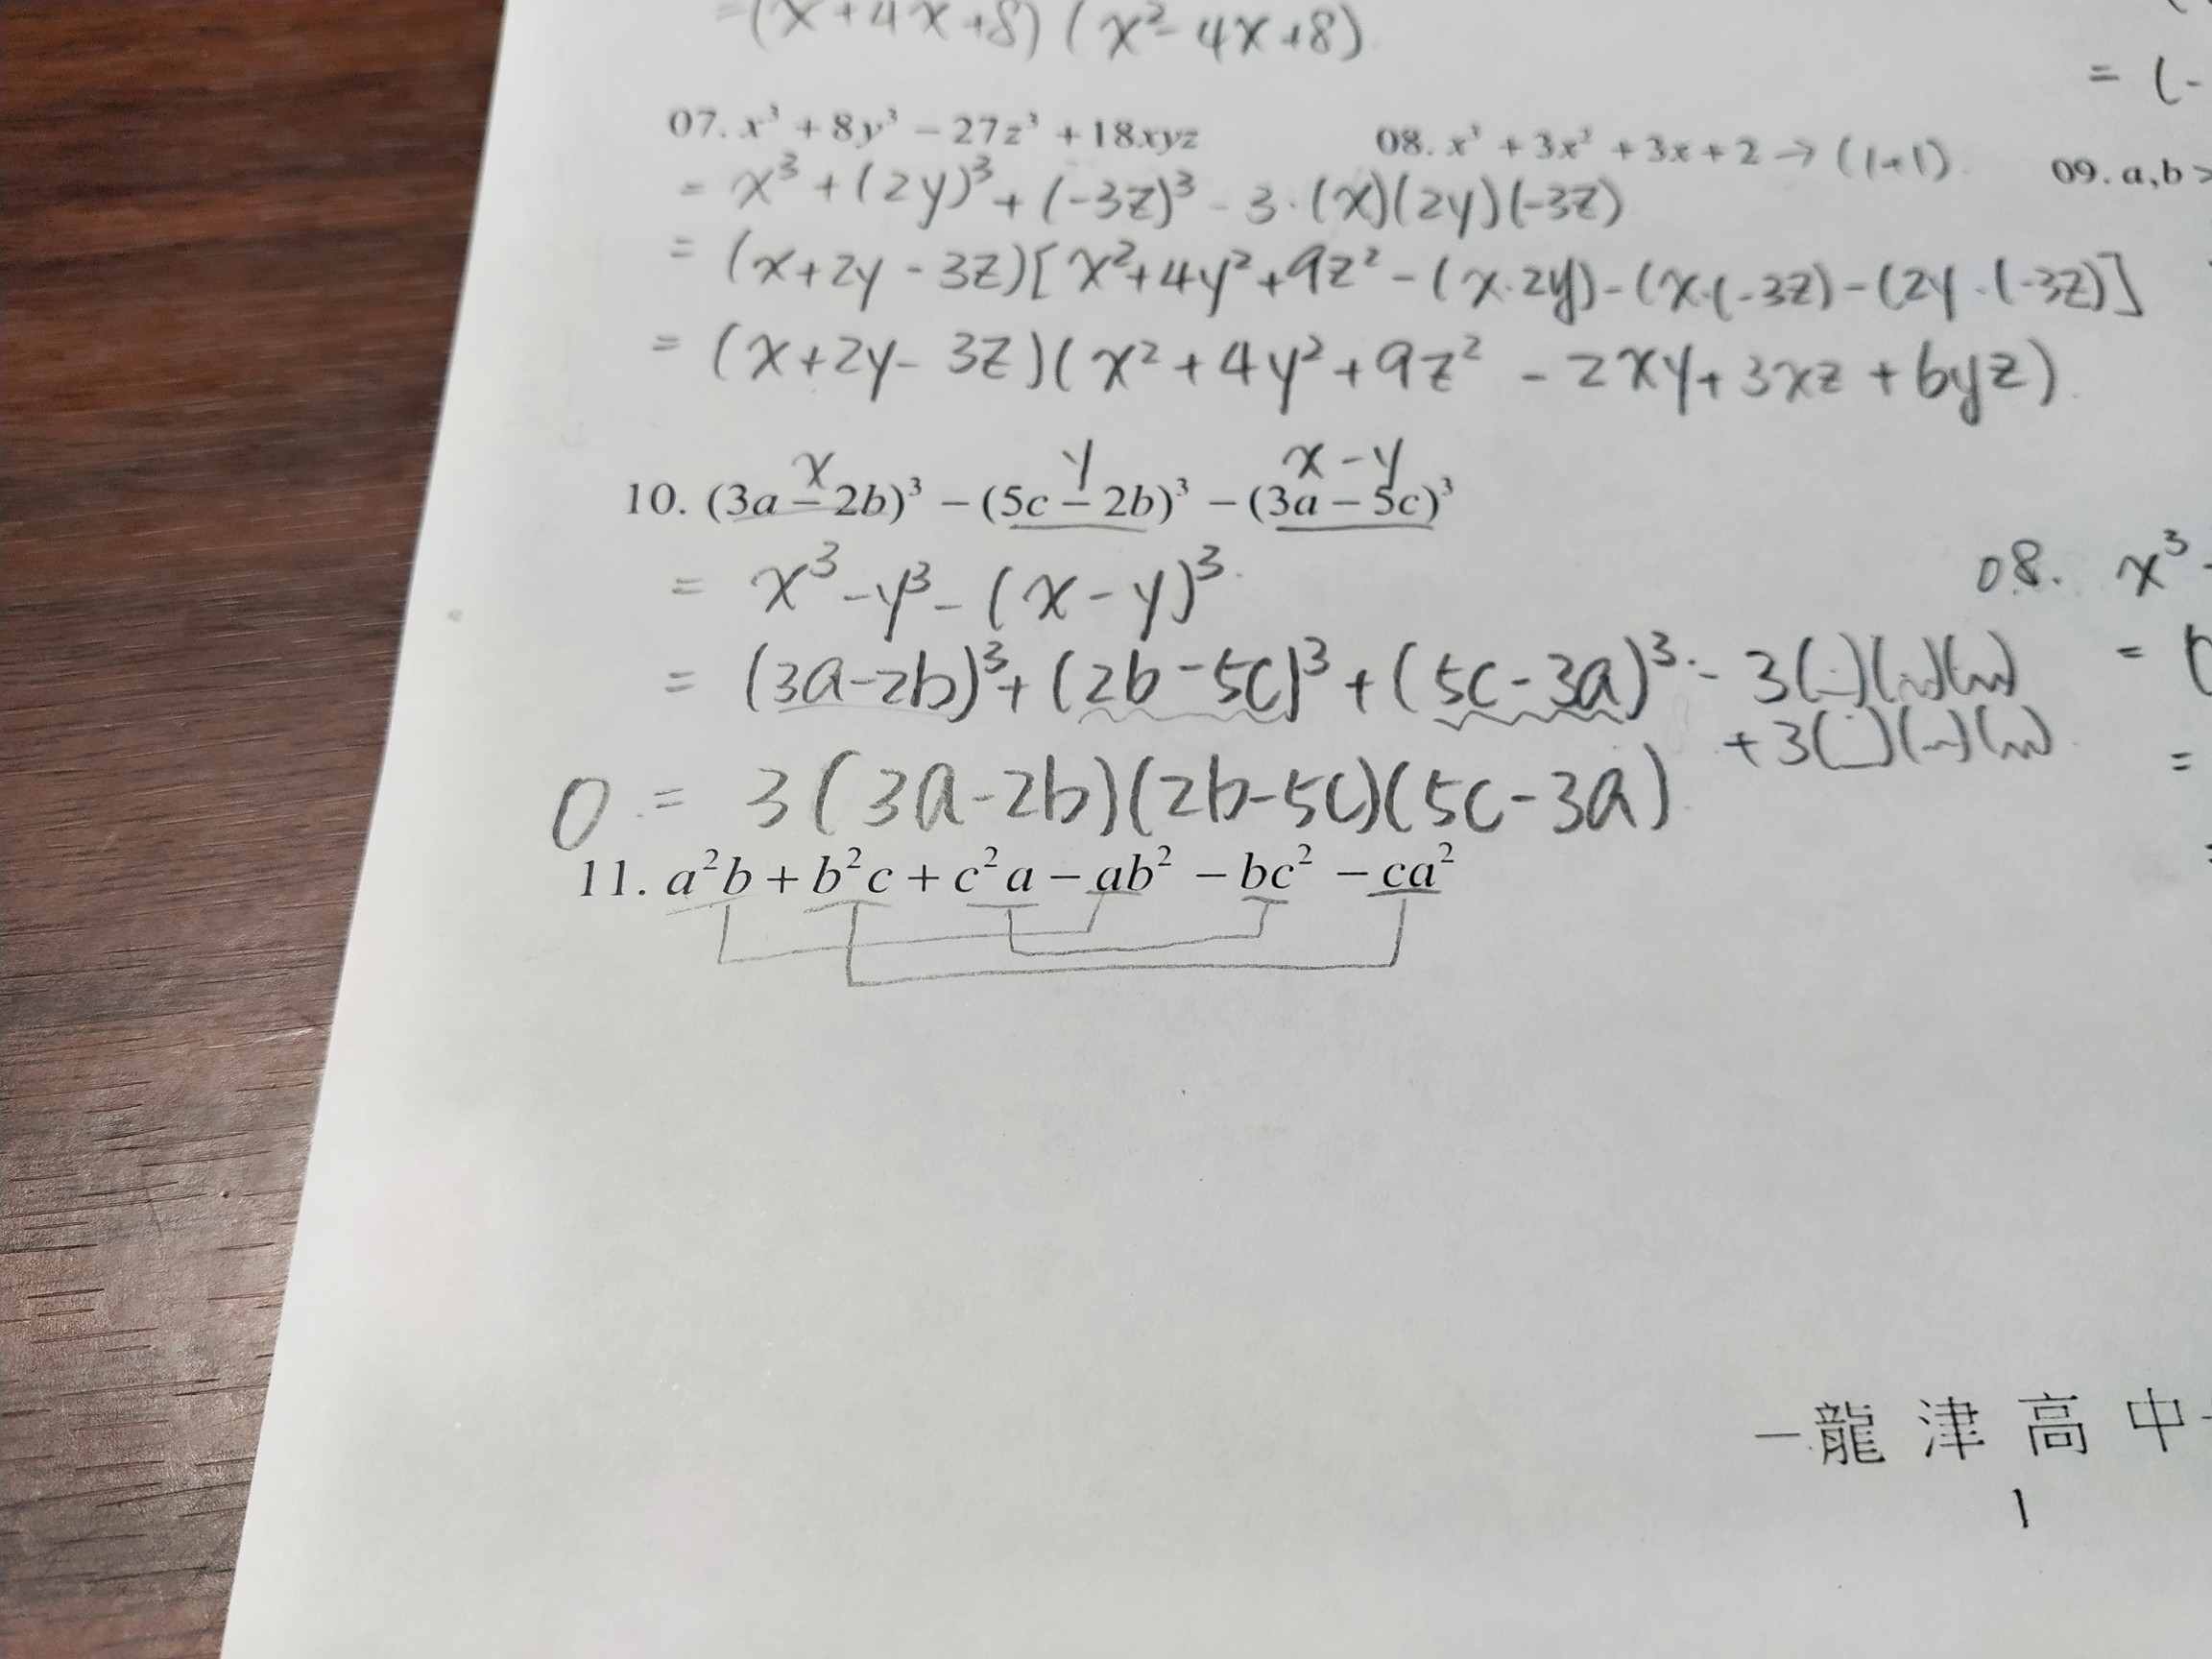 =(x+4x+8)(x²-4x+8)
= (-
07. x³ + 8y³ − 27z³ + 18xyz
08. x³ + 3x² + 3x + 2 → (1+1)
09. a,b >
= x³+(2y)³+(-3z)³-3·(x)(2y)(-3z)
= (x+2y-3z)[x²+4y²+9z²-(x·2y)-(x·(-3z)-(2y·(-3z)]
= (x+2y-3z)(x²+4y²+9z²-2xy+3xz+6yz)
x y x-y
10. (3a − 2b)³ − (5c − 2b)³ − (3a − 5c)³
= x³-y³-(x-y)³
08. x³
= (3a-2b)³+(2b-5c)³+(5c-3a)³-3( )( )( )
+3( )( )( )
0 = 3(3a-2b)(2b-5c)(5c-3a)
11. a²b + b²c + c²a − ab² − bc² − ca²
—龍津高中
1